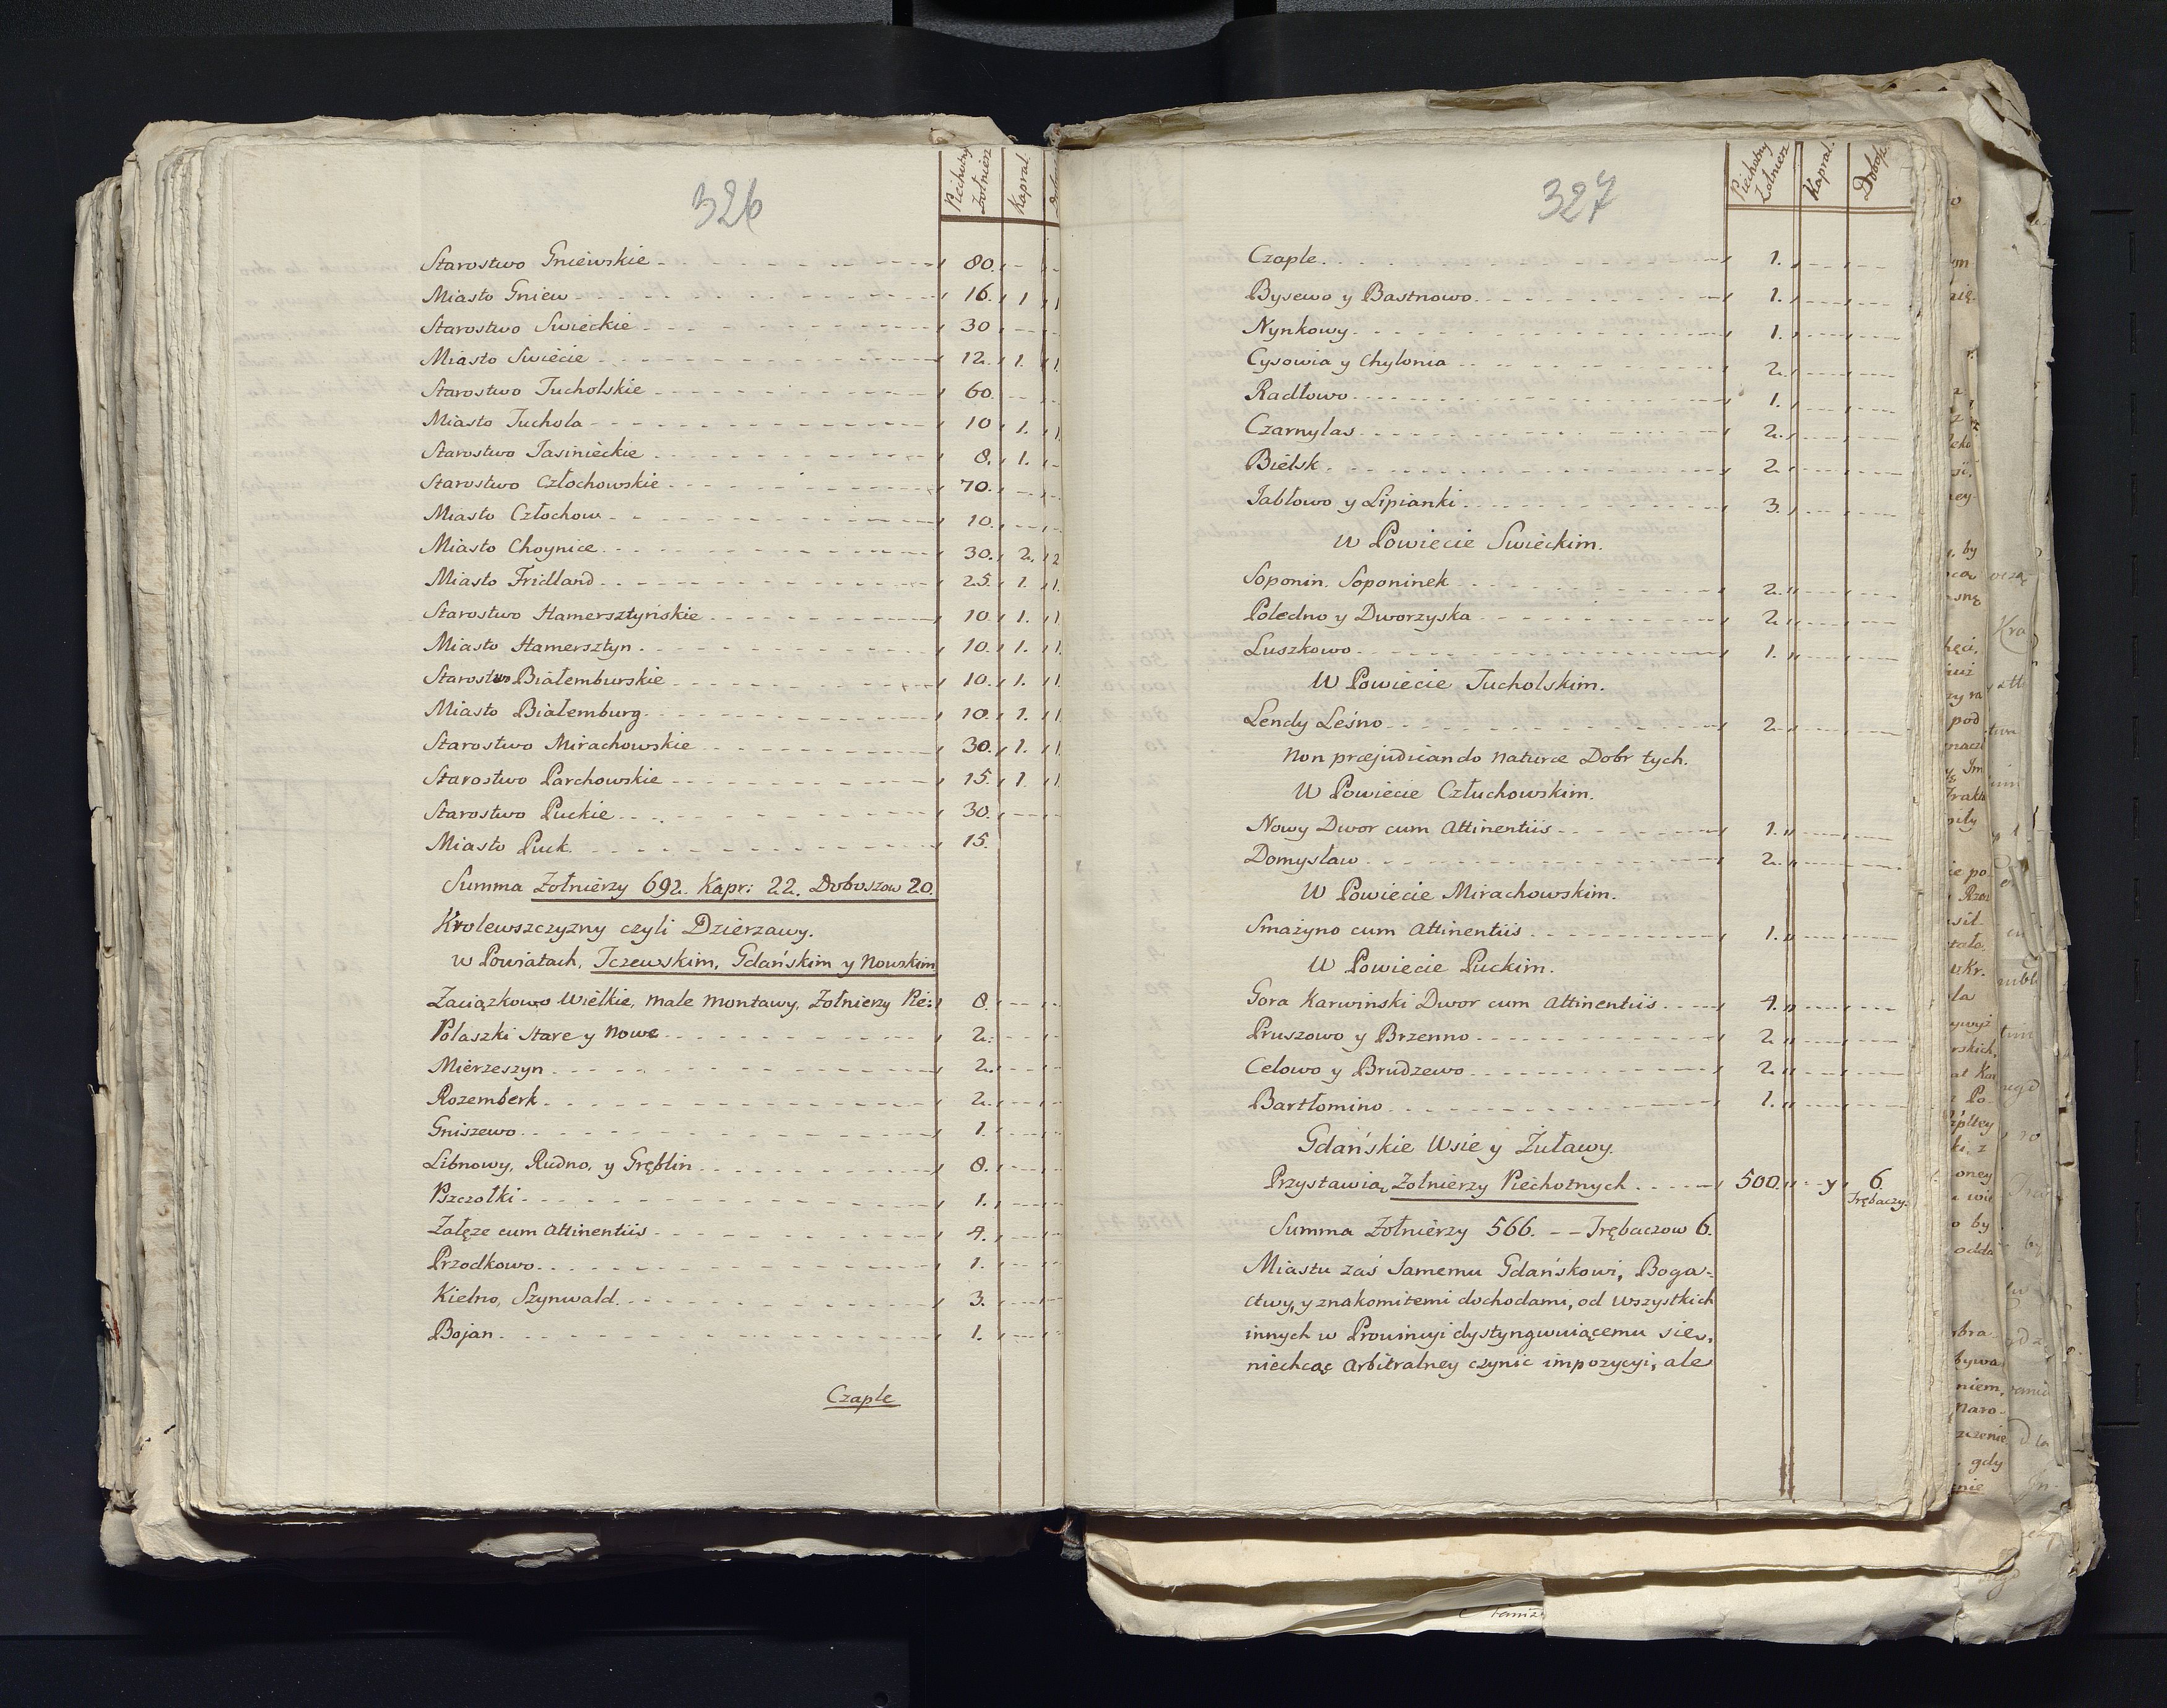 326
Piechotny Żołnierz Kapral.
Starostwo Gniewskie 80.
Miasto Gniew 16. 1 1
Starostwo Swieckie 30
Miasto Swiecie 12. 1. 1.
Starostwo Tucholskie 60.
Miasto Tuchola 10 1. 1.
Starostwo Jasinieckie 8. 1.
Starostwo Człochowskie 70.
Miasto Człochow 10.
Miasto Choynice 30. 2. 2
Miasto Fridland 25. 1. 1.
Starostwo Hamersztyńskie 10. 1. 1.
Miasto Hamersztyn 10. 1. 1.
Starostwo Białemburskie 10. 1. 1.
Miasto Białemburg 10. 1. 1.
Starostwo Mirachowskie 30. 1. 1.
Starostwo Parchowskie 15. 1 1.
Starostwo Puckie 30.
Miasto Puck. 15.
Summa Żołnierzy 692. Kapr: 22. Doboszow 20.
Krolewszczyzny czyli Dzierzawy.
w Powiatach, Tczewskim, Gdańskim y Nowskim
Zaciązkowo Wielkie, małe Montawy, Żołnierzy Pie: 8.
Polaszki Stare y Nowe 2.
Mierzeszyn 2.
Rozemberk 2.
Gniszewo 1.
Libnowy, Rudno, y Gręblin 8.
Pszczołki 1.
Załęze cum Attinentiis 4.
Przodkowo 1.
Kielno, Szynwald. 3.
Bojan 1.
Czaple
327
Piechotny Żołnierz Kapral. Dobosz
Czaple. 1.
Bysewo y Bastnowo 1.
Nynkowy 1.
Cysowia y Chylonia 2.
Radłowo 1.
Czarnylas 2.
Bielsk 2.
Jabłowo y Lipianki 3.
W Powiecie Swieckim.
Soponin. Soponinek 2.
Poledno y Dworzyska 2
Luszkowo 1.
W Powiecie Tucholskim.
Lendy Leśno 2.
Non præjudicando Naturæ Dobr tych.
W Powiecie Człuchowskim.
Nowy Dwor cum Attinentiis 1.
Domysław 2.
W Powiecie Mirachowskim.
Smażyno cum Attinentiis 1.
W Powiecie Puckim.
Gora Karwiński Dwor cum Attinentiis 4.
Pruszowo y Brzenno 2
Celowo y Brudzewo 2
Bartłomino 1.
Gdańskie Wsie y Żuławy.
Przystawią Żołnierzy Piechotnych 500. y 6. Trębaczy.
Summa Żołnierzy 566. -- Trębaczow 6.
Miastu zaś Samemu Gdańskowi, Boga-
ctwy, y znakomitemi dochodami, od wszystkich
innych w Prowincyi dystyngwuiącemu sie,
niechcąc Arbitralney czynic impozycyi, ale